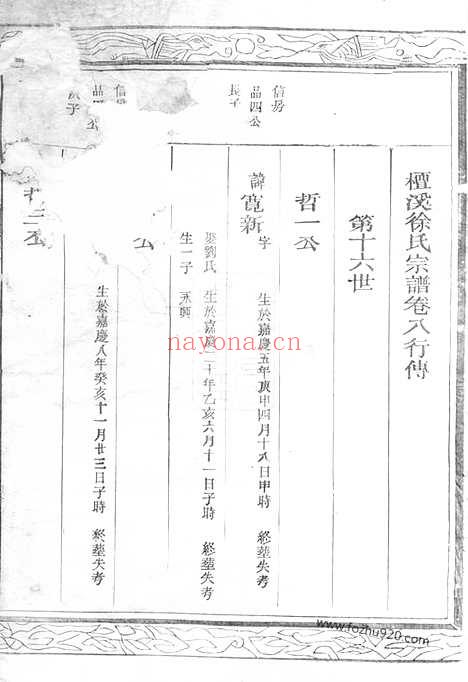 檀溪徐氏宗譜卷八行傳
第十六世
哲一公
信房
品四公
長子
諱寬新
字 生於嘉慶五年庚申四月十九日申時 終塟失考
娶劉氏 生於嘉慶二十年乙亥六月十一日子時 終塟失考
生一子 永興
公
信房
品
公
次子
生於嘉慶八年癸亥十一月廿三日子時 終塟失考
三公
nayona.cn
www.fozhu920.com